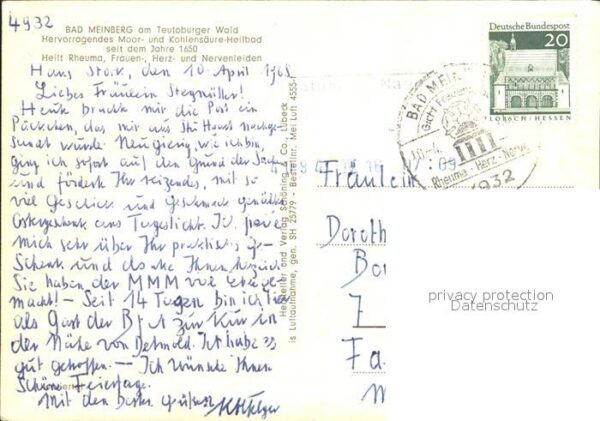 4932
BAD MEINBERG am Teutoburger Wald
Hervorragendes Moor- und Kohlensäure-Heilbad
seit dem Jahre 1650
Heilt Rheuma, Frauen-, Herz- und Nervenleiden
Deutsche Bundespost
20
LORSCH/HESSEN
BAD MEIN
Rheuma - Herz - Nerven
4932
Haus den 10. April 1968
Liebes Fräulein Stegmüller!
Heute brachte mir die Post ein
Päckchen, das mir aus Ski Haus nachge-
sandt wurde. Neugierig, wie ich bin,
ging ich sofort auf den Grund der Sache
und förderte Ihr reizendes, mit so
viel Geschick und Geschmack gemaltes
Ostergeschenk ans Tageslicht. Ich
mich sehr über Ihr praktisches Ge-
schenk und danke Ihnen herzlich
Sie haben der MMM viel
macht! - Seit 14 Tagen bin ich hier
als Gast der BfA zur Kur in
der Nähe von Detmold. Ich habe es
gut getroffen. - Ich wünsche Ihnen
Schöne Feiertage.
Mit den besten Grüßen
Hersteller und Verlag Schöning & Co., Lübeck
Luftaufnahme, gen. SH 25779 Bestellnr. Mei Luft 4555
Fräulein
Doroth
Bo
7
Fa
M
privacy protection
Datenschutz